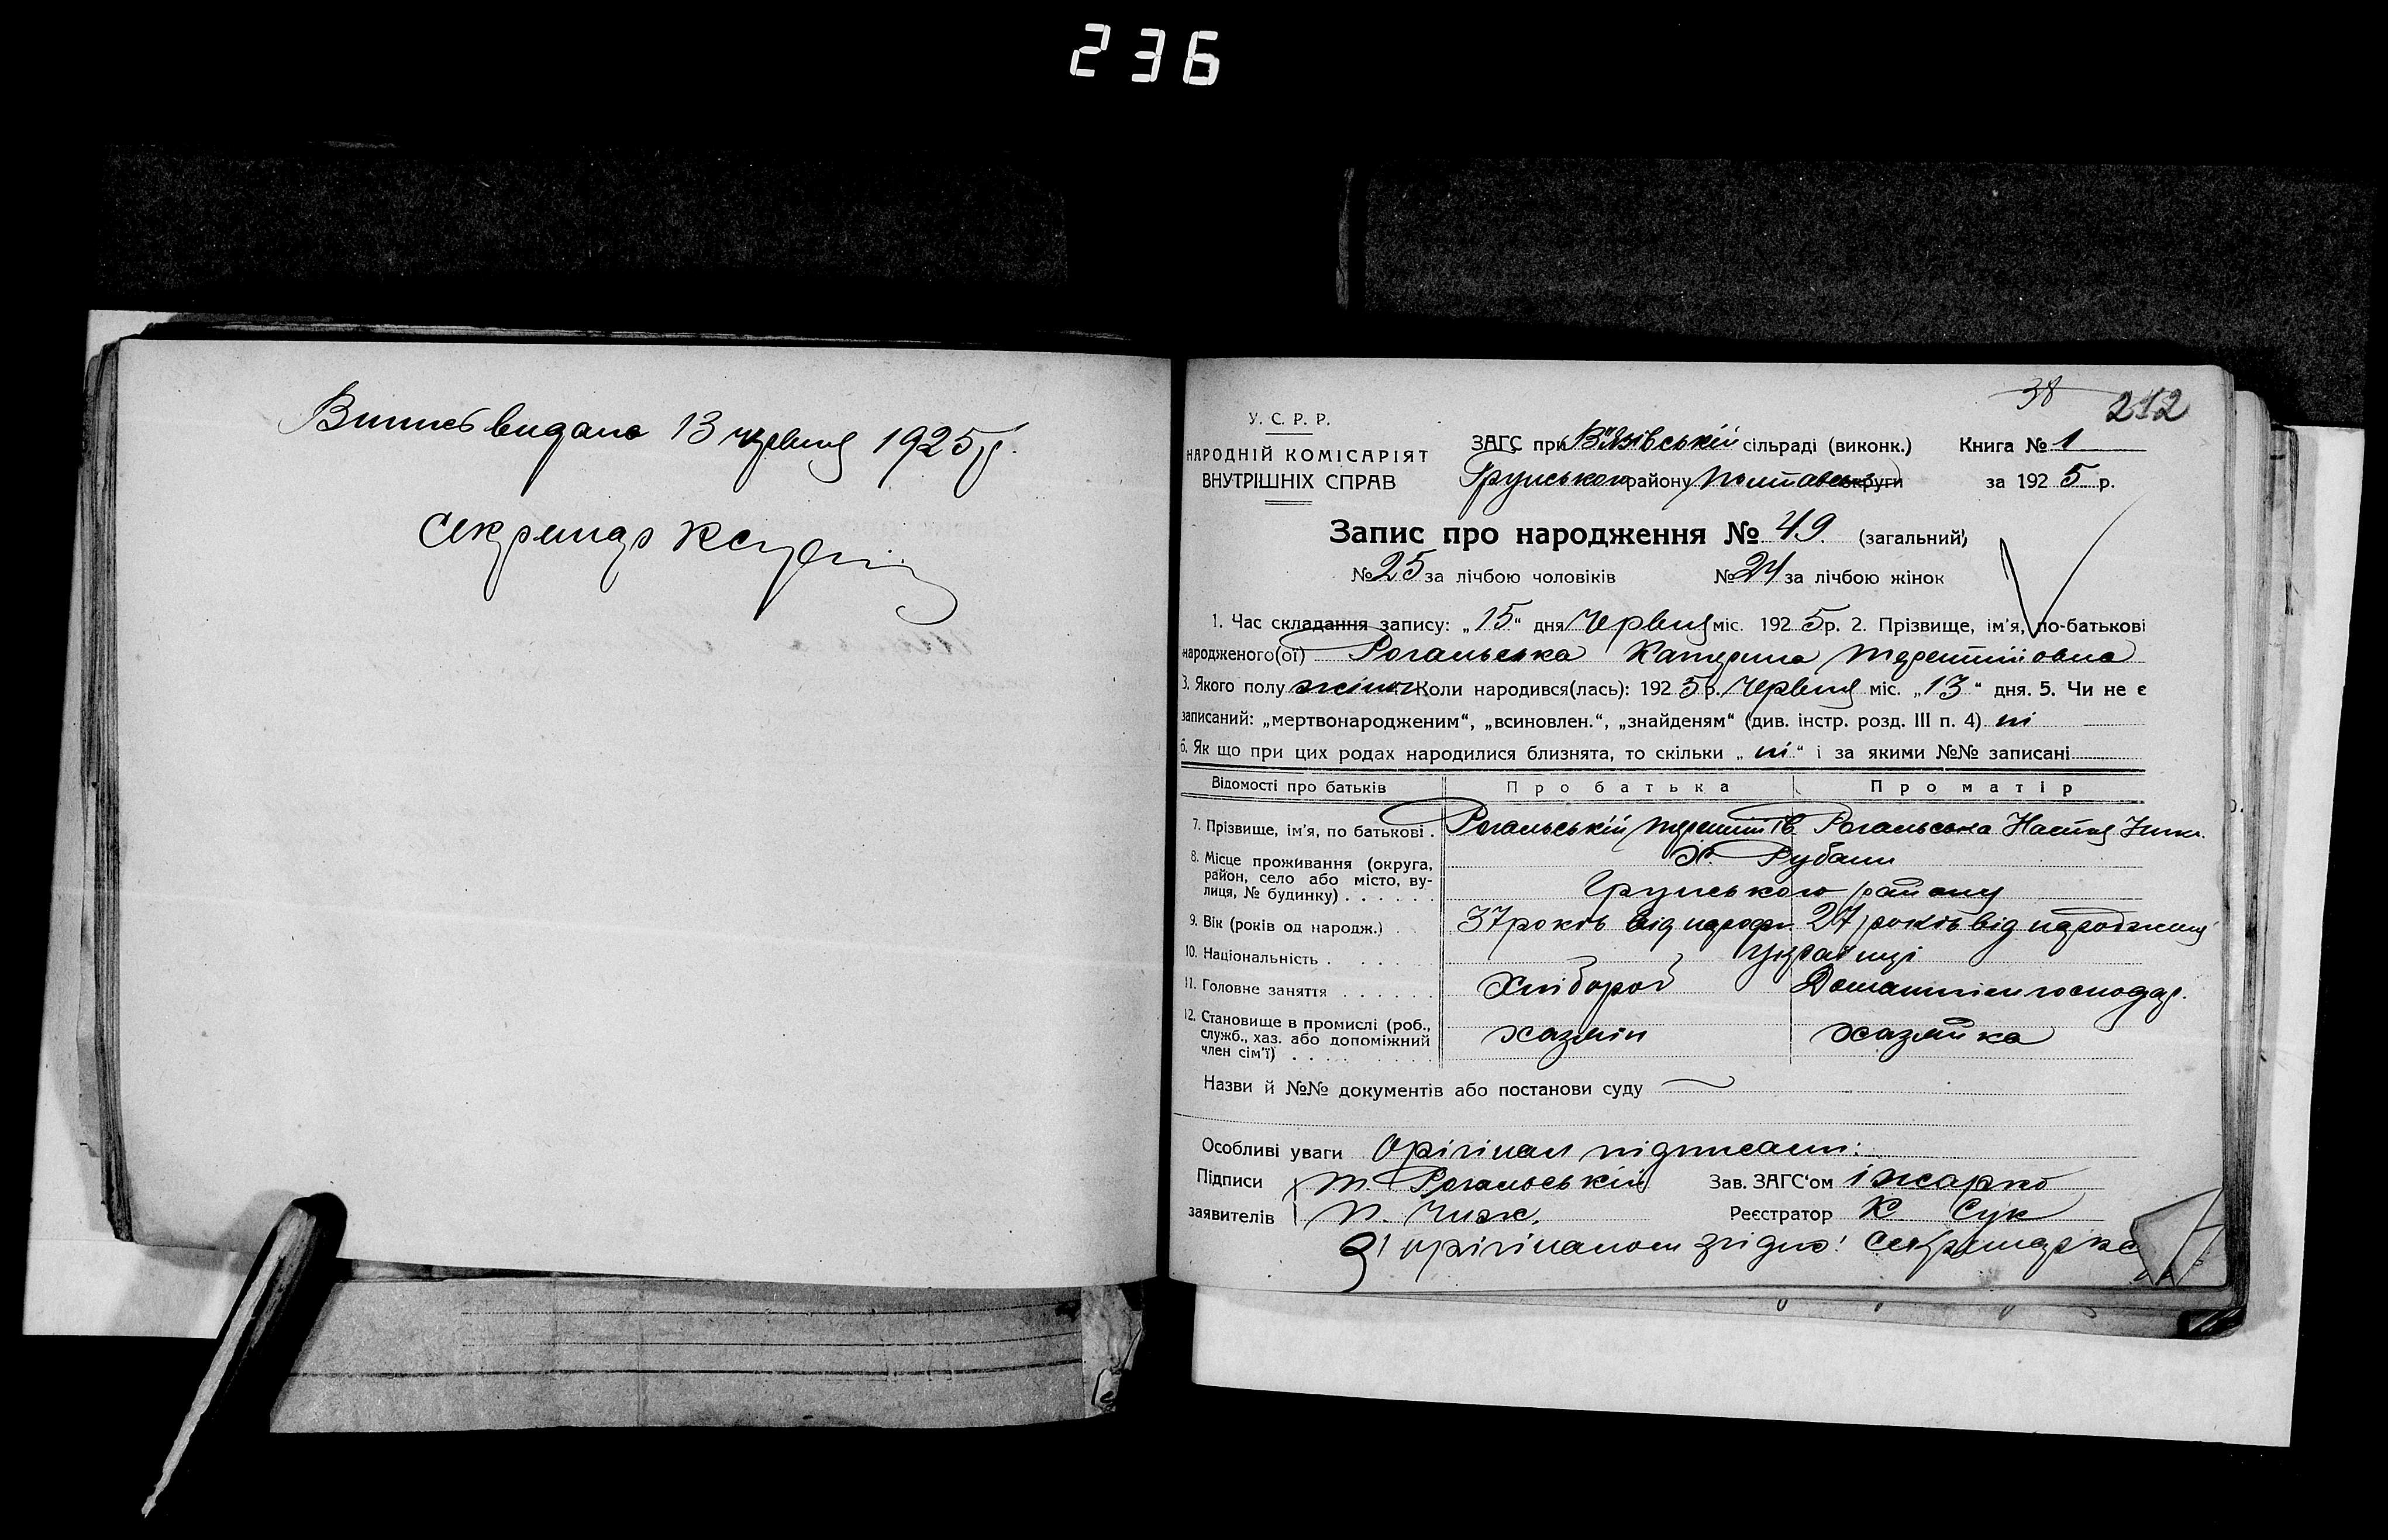 236
Випис видано 13 червня 1925 р.
Секретар
38
212
У. С. Р. Р.
НАРОДНІЙ КОМІСАРІЯТ
ВНУТРІШНІХ СПРАВ
ЗАГС при В'язівській сільраді (виконк.) Книга № 1
Грунського району Полтавськ округи за 1925 р.
Запис про народження № 49. (загальний)
№ 25 за лічбою чоловіків № 24 за лічбою жінок
1. Час складання запису: „15“ дня Червня міс. 1925 р. 2. Прізвище, ім'я, по-батькові
народженого(ої) Рогальська Катерина Терентіівна
3. Якого полу жіноч Коли народився(лась): 1925 р. Червня міс. „13“ дня. 5. Чи не є
записаний: „мертвонародженим“, „всиновлен.“, „знайденям“ (див. інстр. розд. III п. 4) ні
6. Як що при цих родах народилися близнята, то скільки „ні“ і за якими №№ записані
Відомості про батьків Про батька Про матір
7. Прізвище, ім'я, по батькові . Рогальській Терентій Рогальська Настя
8. Місце проживання (округа, район, село або місто, вулиця, № будинку) . . . . . . х. Рубани
Грунського району
9. Вік (років од народж.) . 37 років від народж. 27 років від народження
10. Національність . . . . . Українці
11. Головне заняття . . . . . . Хлібороб Домашнім господар.
12. Становище в промислі (роб., служб., хаз. або допоміжний член сім'ї) . . . . . . . . . хазяін хазяйка
Назви й №№ документів або постанови суду
Особливі уваги Орігінал підписали:
Підписи Т. Рогальській Зав. ЗАГС'ом
заявителів П. Чиж. Реєстратор К. Сук
З орігіналом згідно! Секретарка